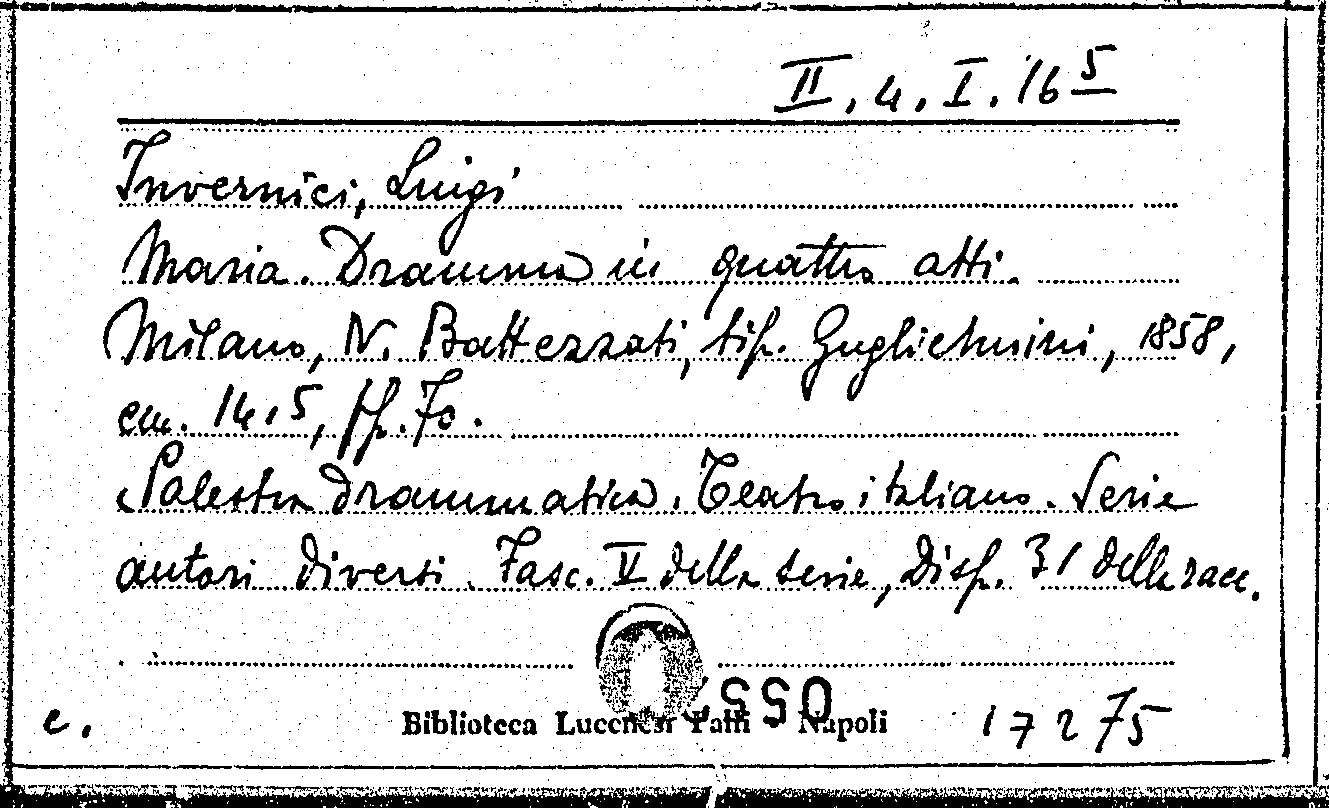 II. 4. I. 16 5
Invernici, Luigi
Maria. Dramma in quattro atti.
Milano, N. Battezzati, tip. Guglielmini, 1858,
cm. 14,5, pp. 70.
Palestra drammatica. Teatro italiano. Serie
autori diversi. Fasc. V della serie, Disp. 31 della racc.
Biblioteca Lucchesi Palli Napoli
c. 17275